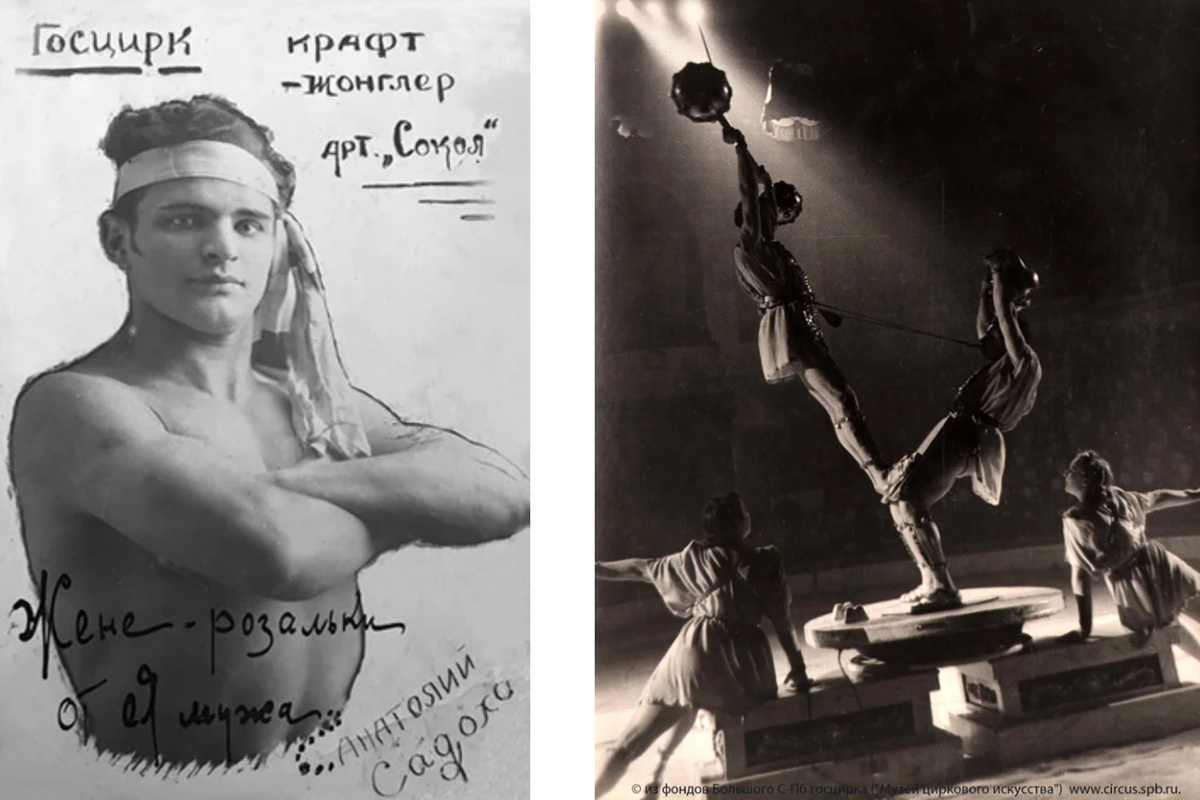 Госцирк
крафт
-жонглер
арт. „Сокол"
Жене - розальки
от ея мужа
АНАТОЛИЙ
Садоха
© из фондов Большого С-Пб госцирка ("Музей циркового искусства") www.circus.spb.ru.